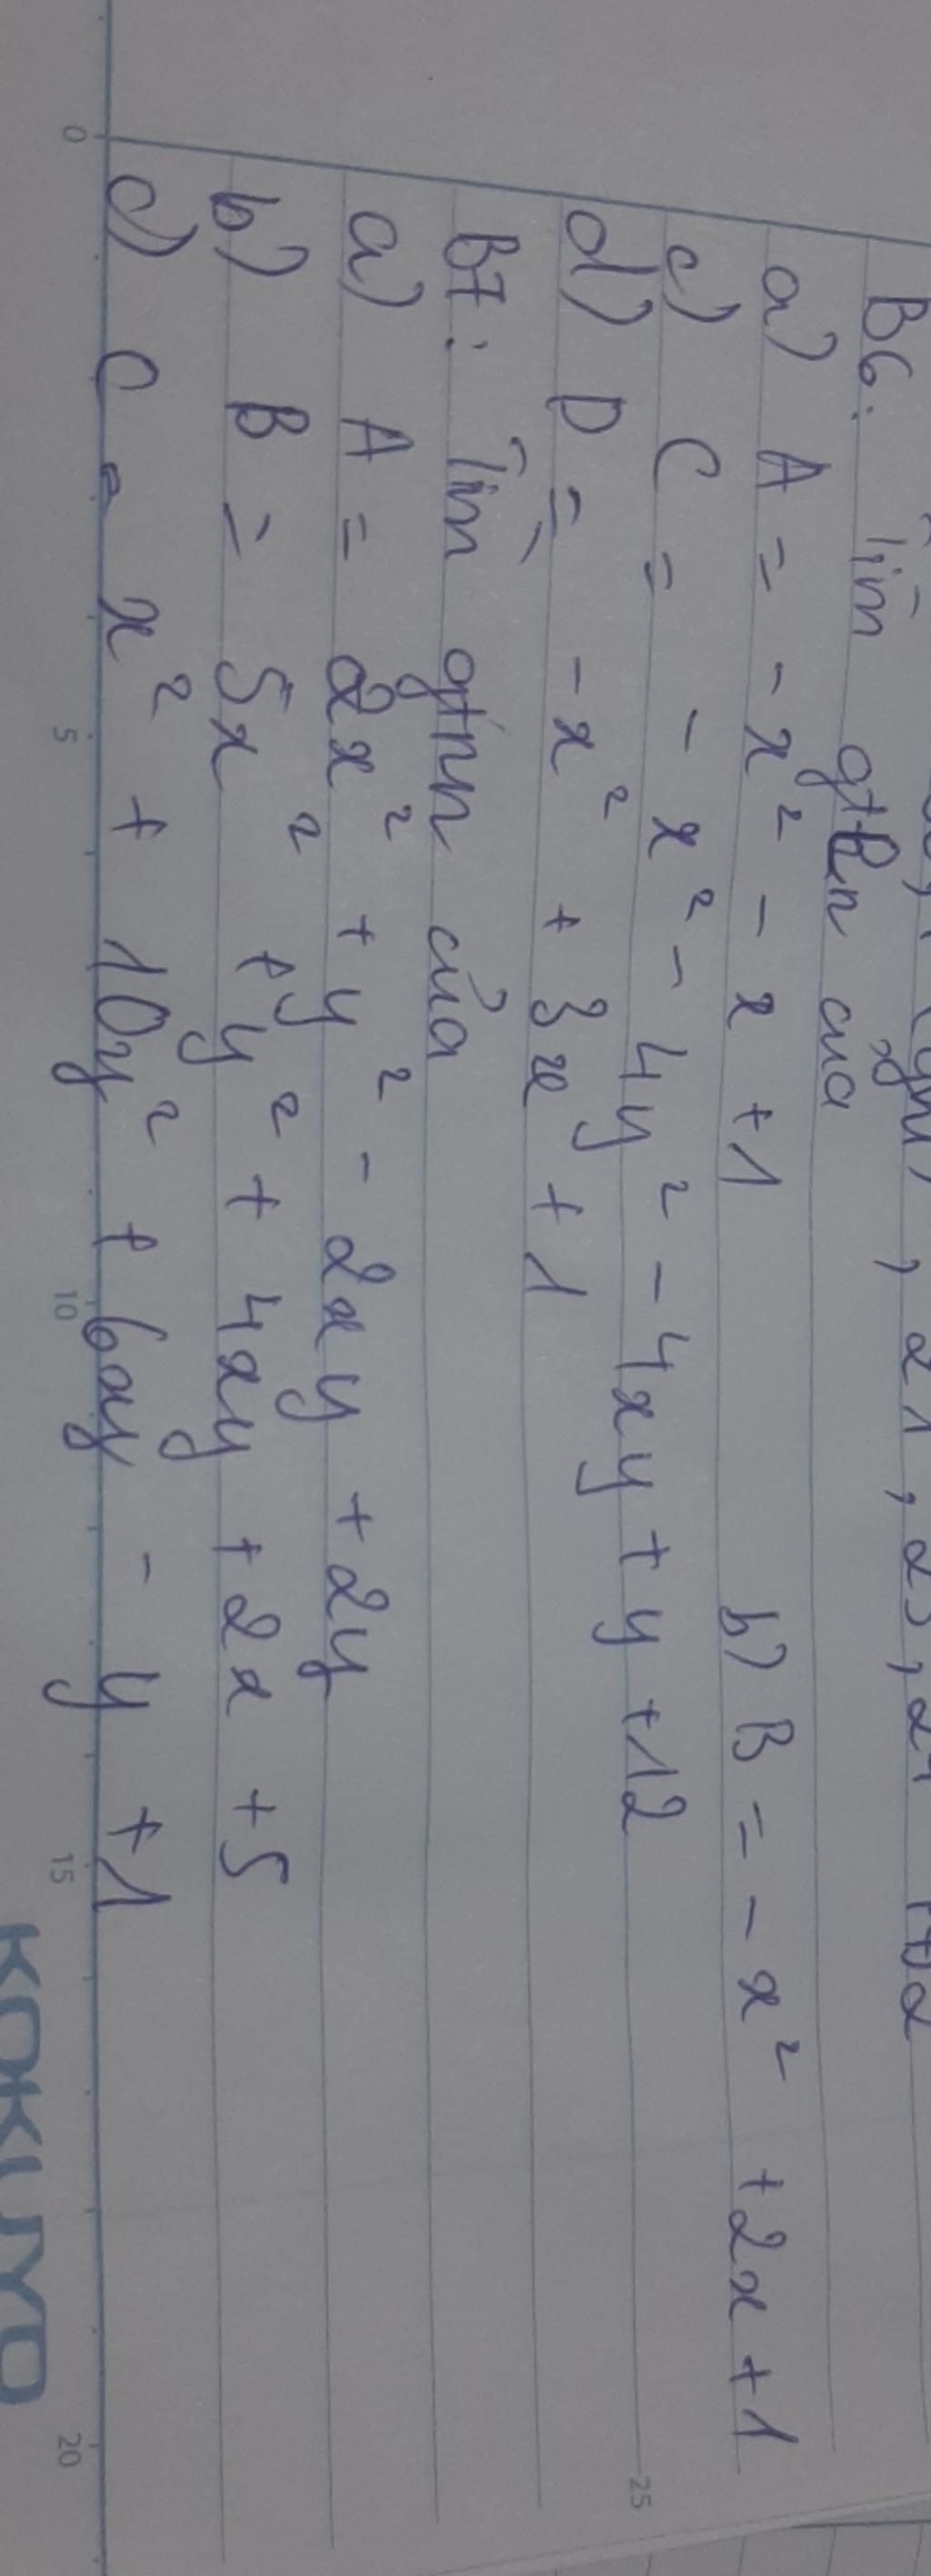 B6: Tìm gtln của
a) A = - x² - x + 1 b) B = - x² + 2x + 1
c) C = - x² - 4y² - 4xy + y + 12
d) D = - x² + 3x + 1
B7: Tìm gtnn của
a) A = 2x² + y² - 2xy + 2y
b) B = 5x² + y² + 4xy + 2x + 5
c) C = x² + 10y² + 6xy - y + 1
0 5 10 15 20
25
KOKUYO